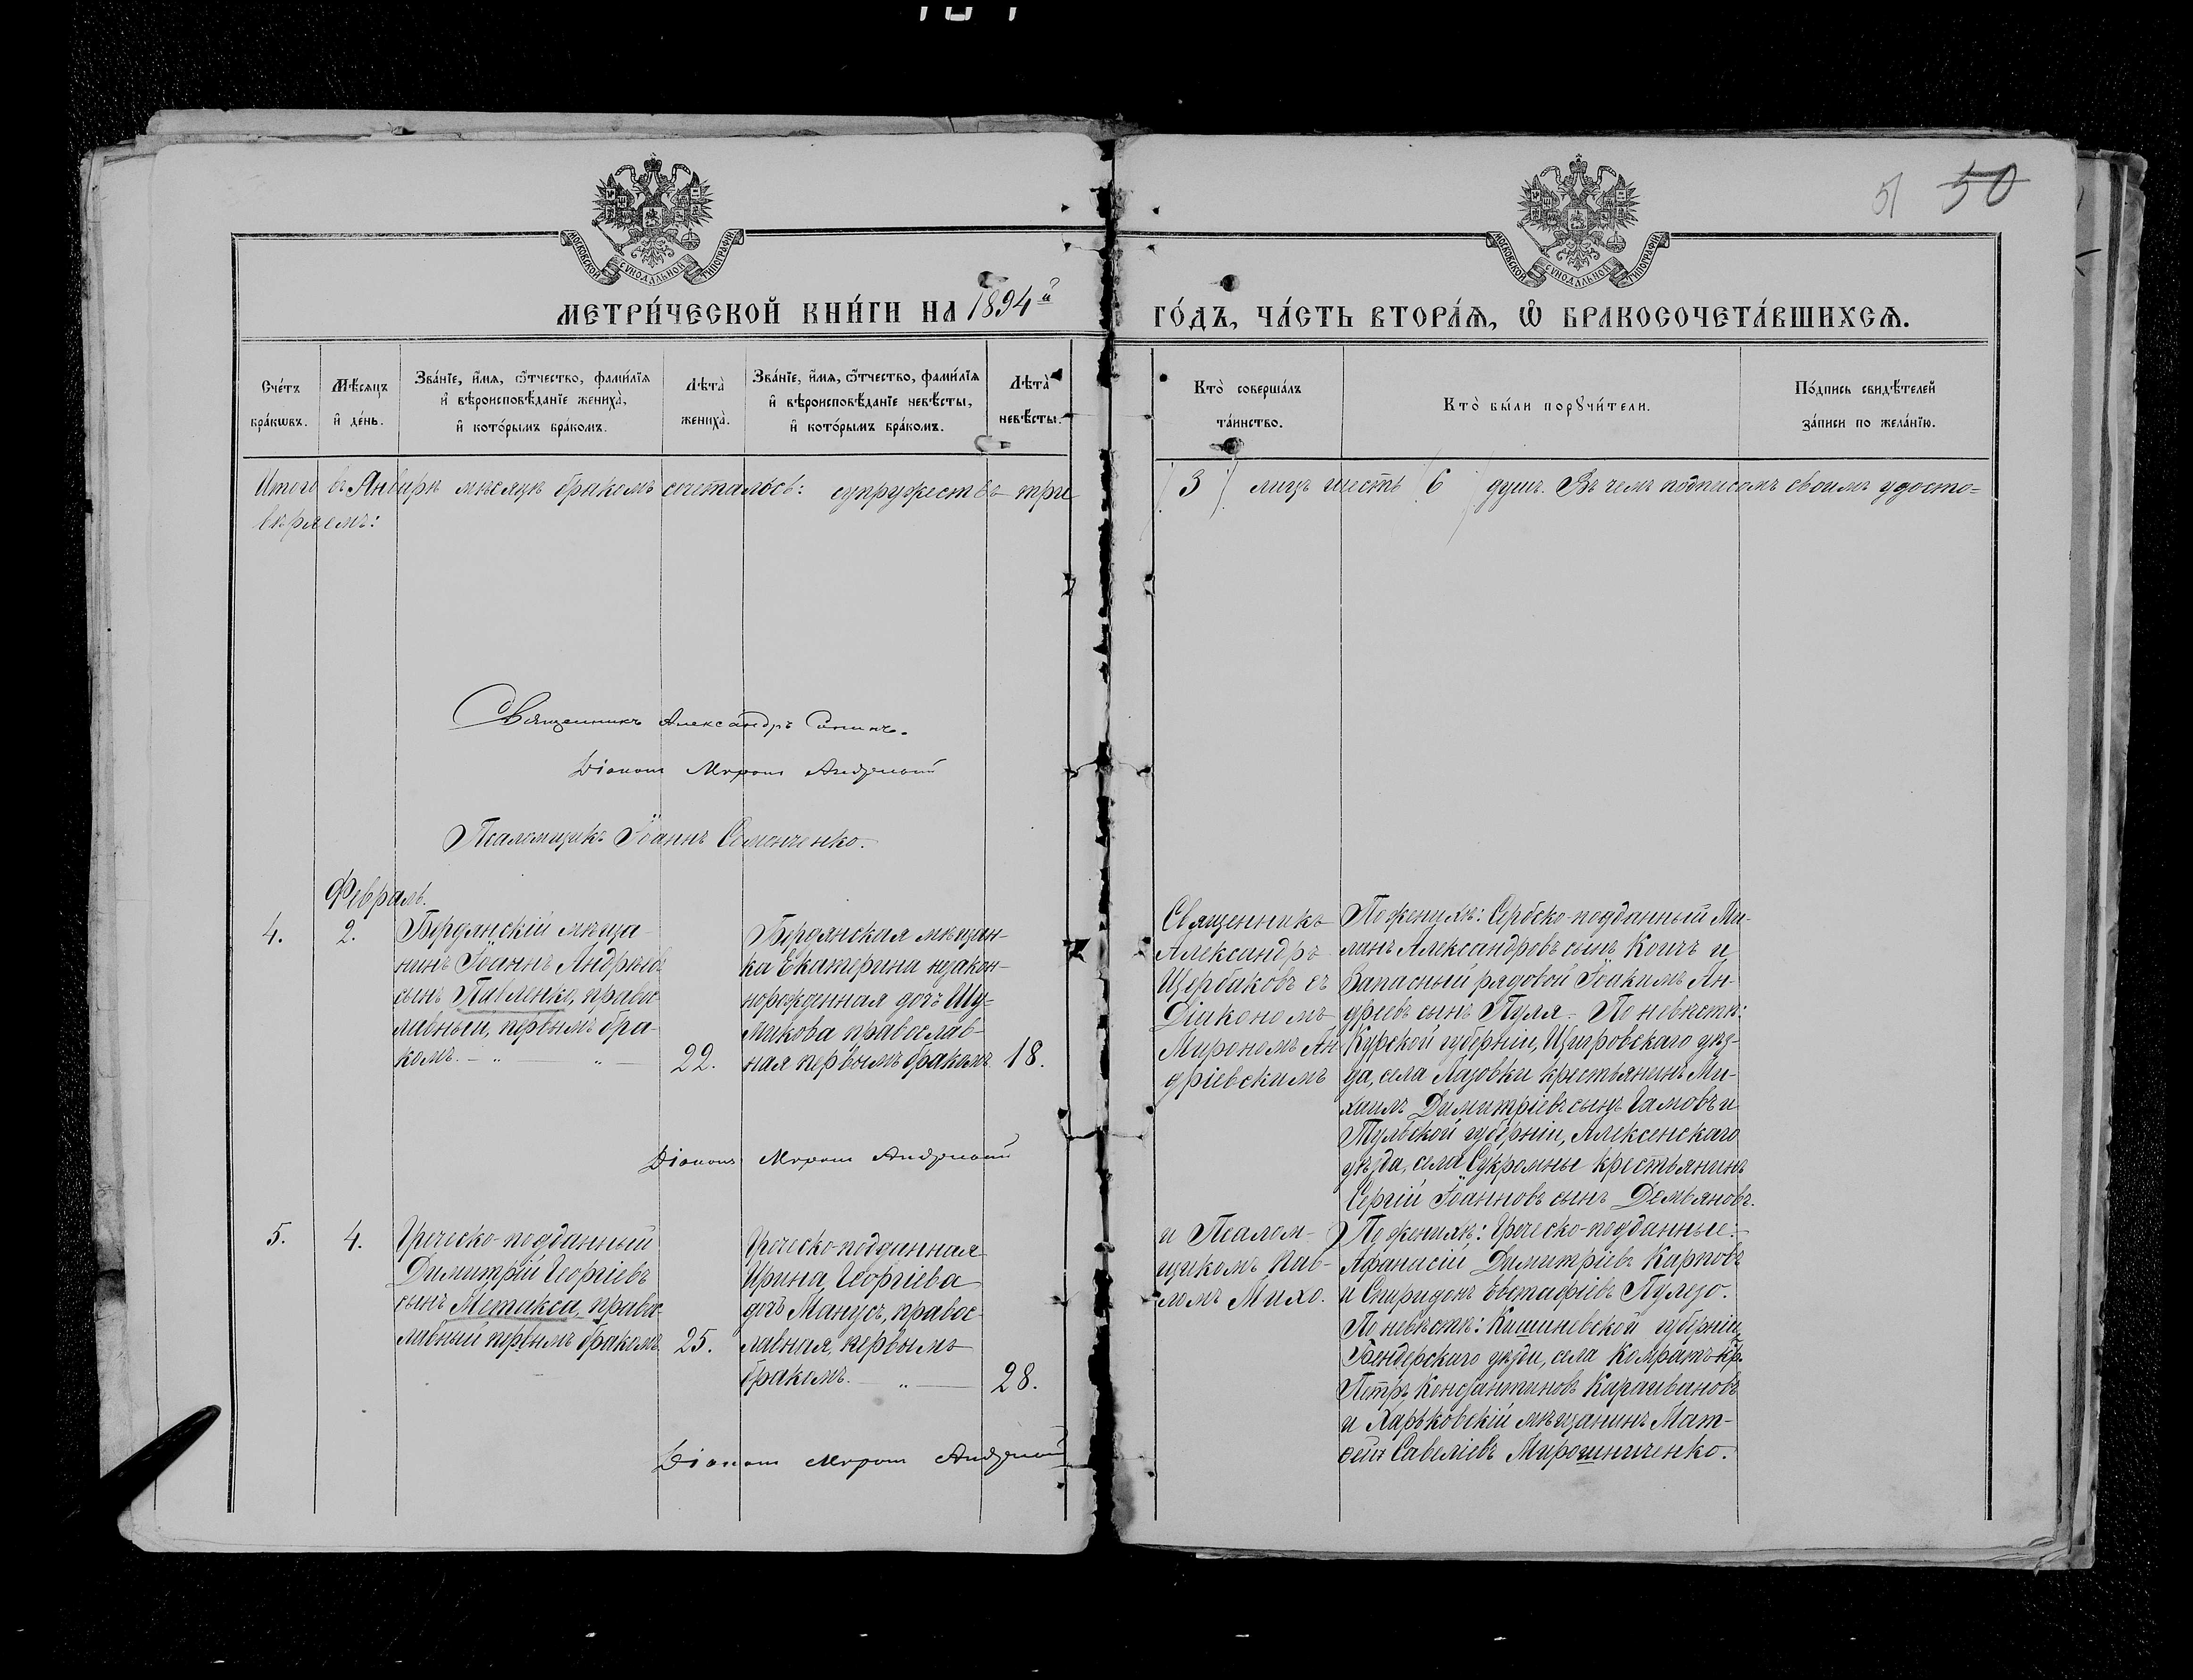 51 50
МОСКОВСКОЙ СУНОДАЛЬНОЙ ТИПОГРАФІИ
МОСКОВСКОЙ СУНОДАЛЬНОЙ ТИПОГРАФІИ
МЕТРИ́ЧЕСКОЙ КНИ́ГИ НА 1894й ГО́ДЪ, ЧА́СТЬ ВТОРА́Ѧ, Ѡ҆ БРАКОСОЧЕТА́ВШИХСѦ.
Сче́тъ бра́кѡвъ.
Мѣ́сѧцъ и҆ де́нь.
Зва́нїе, и҆́мѧ, ѻ҆́тчество, фами́лїѧ
и҆ вѣроисповѣ́данїе жениха̀,
и҆ кото́рымъ бра́комъ.
Лѣта̀ жениха̀.
Зва́нїе, и҆́мѧ, ѻ҆́тчество, фами́лїѧ
и҆ вѣроисповѣ́данїе невѣ́сты,
и҆ кото́рымъ бра́комъ.
Лѣта̀ невѣ́сты.
Кто̀ соверша́лъ
та́инство.
Кто̀ бы́ли порꙋчи́тели.
По́дпись свидѣ́телей
за́писи по жела́нїю.
Итого въ Январѣ мѣсяцѣ бракомъ сочеталось: супружествъ три (3) лицъ шесть (6) душъ. Въ чемъ подписомъ своимъ удосто=
вѣряемъ:
Священникъ Александръ
Діаконъ Миронъ Андріевскій
Псаломщикъ Іоаннъ
Февраль.
4.
2.
Бердянскій мѣща-
нинъ Іоаннъ Андрѣевъ
сынъ Павленко, правос
лавный, первымъ бра-
комъ. - „ — „ —
22.
Бердянская мѣщан-
ка Екатерина незакон-
норожденная дочь Шу-
макова православ-
ная первымъ бракомъ
18.
Священникъ
Александръ
Щербаковъ съ
Діакономъ
Мирономъ Ан
дріевскимъ
По женихѣ: Сербско-подданный Ми-
ланъ Александровъ сынъ Коичъ и
Запасный рядовой Іоакимъ Ан-
дреевъ сынъ Пуля. По невѣстѣ:
Курской губерніи, Щигровскаго уѣз-
да, села Лазовки крестьянинъ Ми-
хаилъ Димитріевъ сынъ Гамовъ и
Тульской губерніи, Алексенскаго
уѣзда, села Сукромны крестьянинъ
Сергій Іоанновъ сынъ Демьяновъ.
Діаконъ Миронъ Андріевскій
5.
4.
Греческо-подданный
Димитрій Георгіевъ
сынъ Метакса, правос
лавный первымъ бракомъ
25.
Греческо-подданная
Ирина Георгіева
дочь Манусъ, правос-
лавная, первымъ
бракомъ. — „ —
28.
и Псалом-
щикомъ Пав-
ломъ Михо.
По женихѣ: Греческо-подданные:
Афанасій Димитріевъ Карповъ
и Спиридонъ Евстафіевъ Пулезо.
По невѣстѣ: Кишиневской губерніи
Бендерскаго уѣзда, села Комратъ кр.
Петръ Константиновъ Карагвановъ
и Харьковскій мѣщанинъ Мат-
ѳей Савеліевъ Мирошниченко.
Діаконъ Миронъ Андріевскій